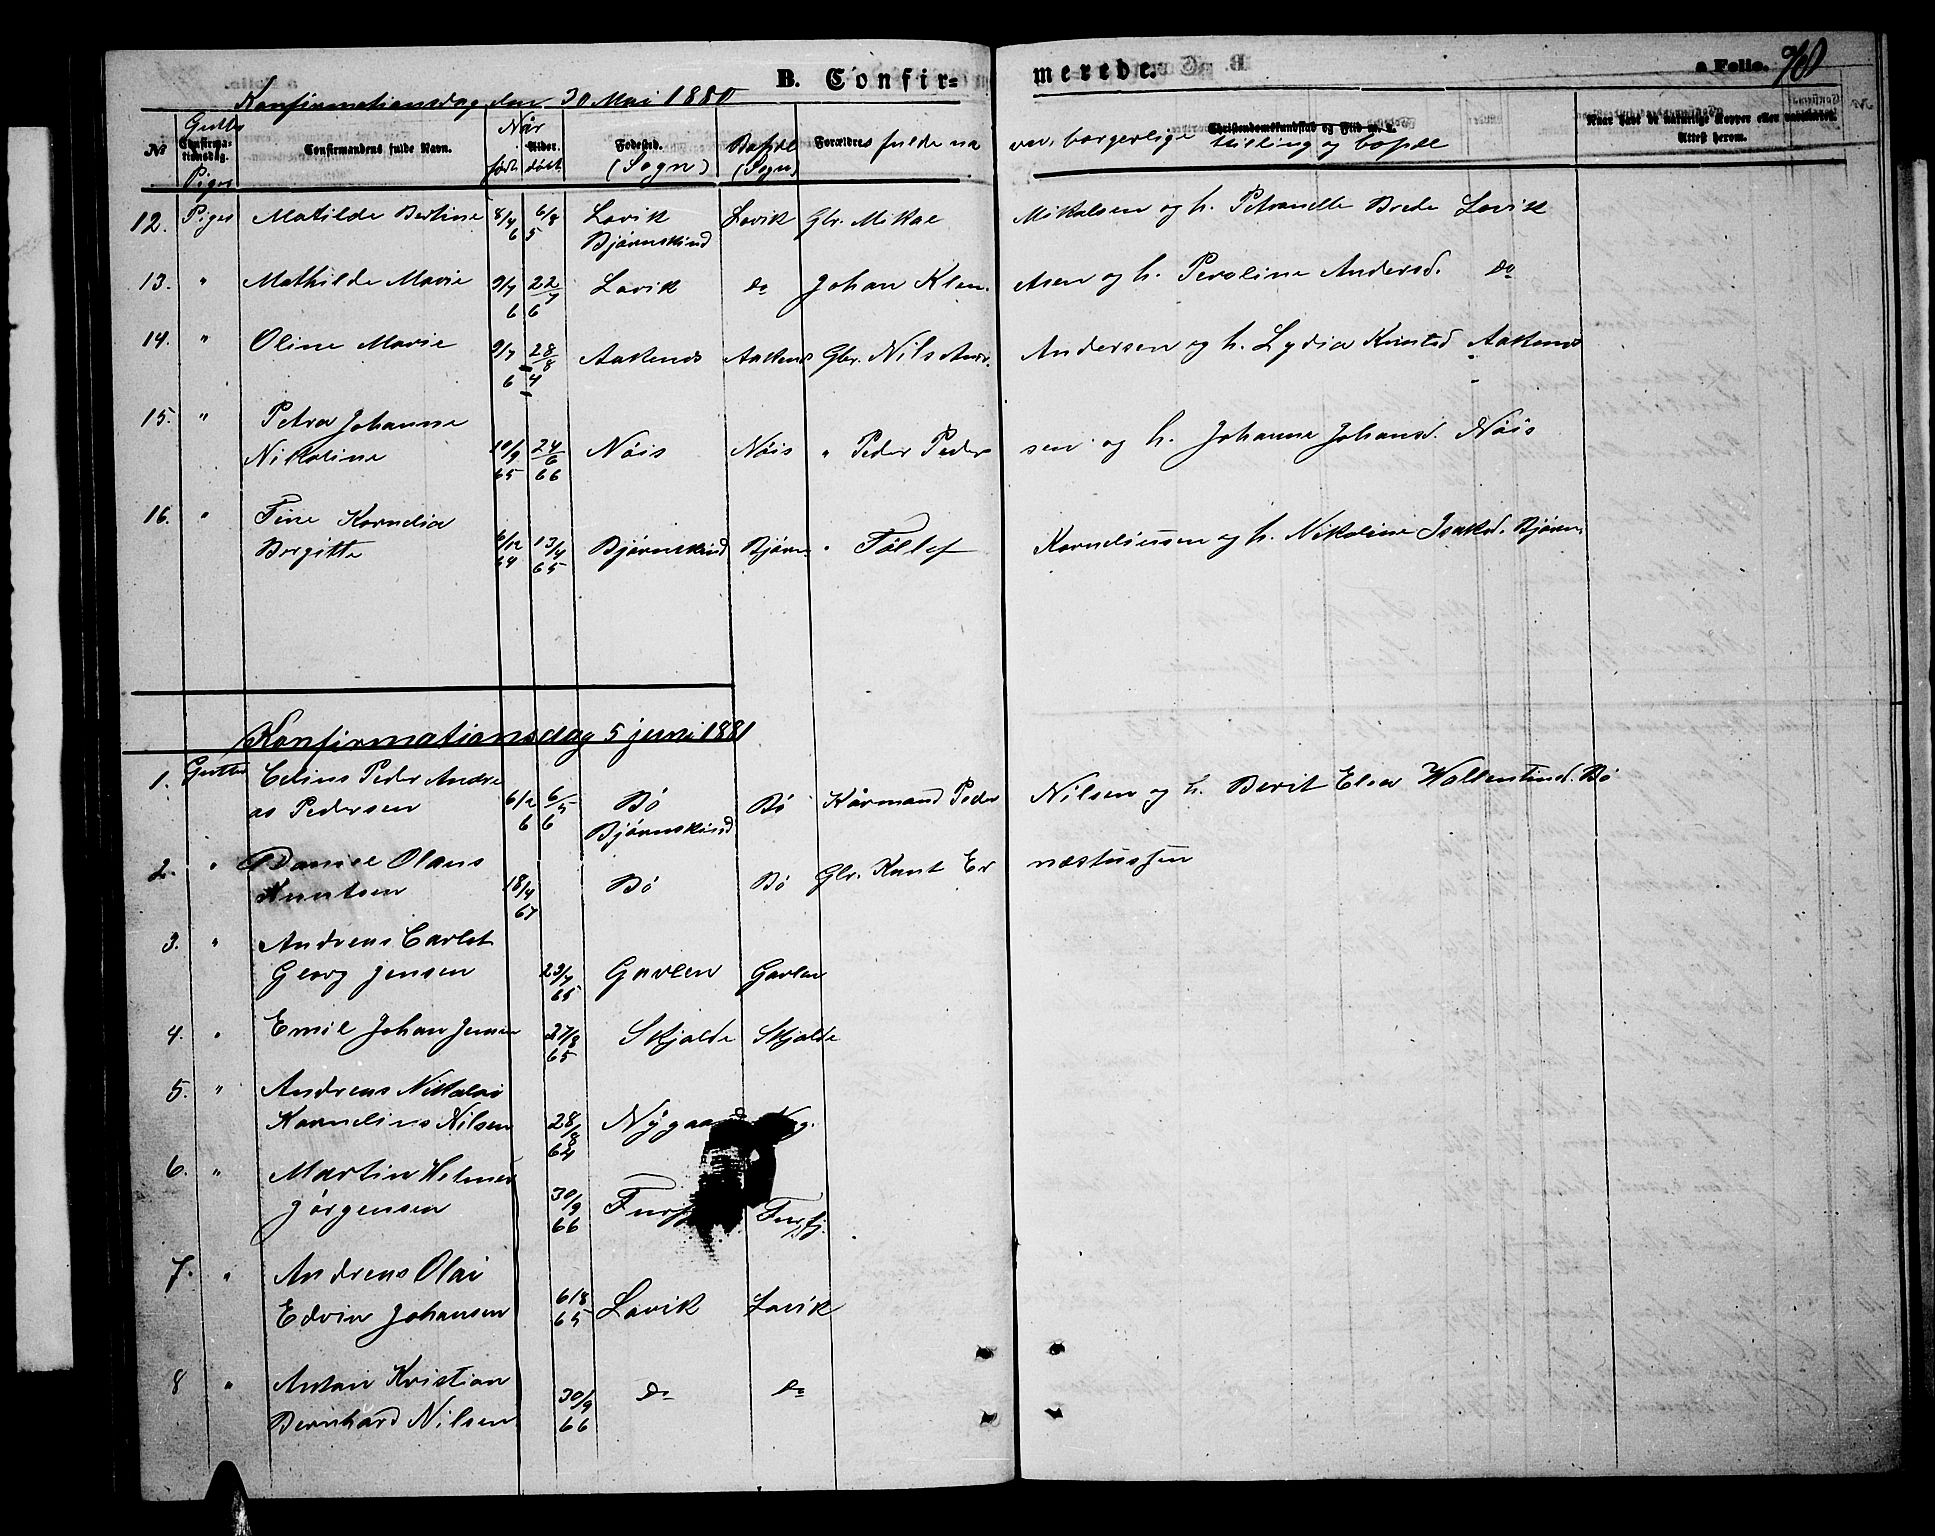 B. Confirmerede. a Folio. 260
Konfirmationsdag den 30 Mai 1880
No Gutter Confirmationsdag. Piger Confirmandens fulde Navn. Når født Alder. døbt Fødested. (Sogn) Bopæl (Sogn) Forældres fulde navn, borgerlige stilling og bopæl Christendomskundskab og Flid m. v. Naar havt de naturlige Kopper eller vaccineret. Attest herom.
12. Piger Matilde Bertine 8/4 6 6/8 5 Lovik Lovik Gbr. Mikal Mikalsen og h. Petronelle Brede Lovik
Bjørnskind
13. " Mathilde Marie 9/7 6 22/7 6 Lovik do Johan Klem. Asen og h. Peroline Andersd. do
14. " Oline Marie 9/7 6 28/8 4 Aakenes Aakenes Gbr. Nils Andr. Andersen og h. Lydia Knutsd Aakenes
15. " Petra Johanne
Nikoline 10/9 65 24/6 66 Nöis Nöis " Peder Peder sen og h. Johanne Johansd. Nöis
16. " Tine Kornelia
Bergitte 6/12 64 13/4 65 Bjørnskind Bjørn " Tollef Korneliussen og h. Nikoline Isaksd. Bjørn.
Konfirmationsdag 5 juni 1881
1. Gutter Edvin Peder Andre
as Pedersen 6/2 6 6/5 6 Bö Bö Kårmand Peder Nilsen og h. Berit Elea Wallentinsd. Bö
Bjørnskind
2. " Daniel Olaus
Knutsen 18/4 67 Bö Bö Gbr. Knut Er næstussen
3. " Andreas Carlot
Georg Jensen 23/7 65 Gavlen Gavlen
4. " Emil Johan Jensen 27/8 65 Skjolde Skjolde
5. " Andreas Nikolai
Kornelius Nilsen 28/8 64 Nÿgaard Nÿg.
6. " Martin Helmer
Jørgensen 30/9 66 Furfj Furfj.
7. " Andreas Olai
Edvin Johansen 6/8 65 Lovik Lovik
8 " Anton Kristian
Bernhard Nilsen 30/9 66 do do